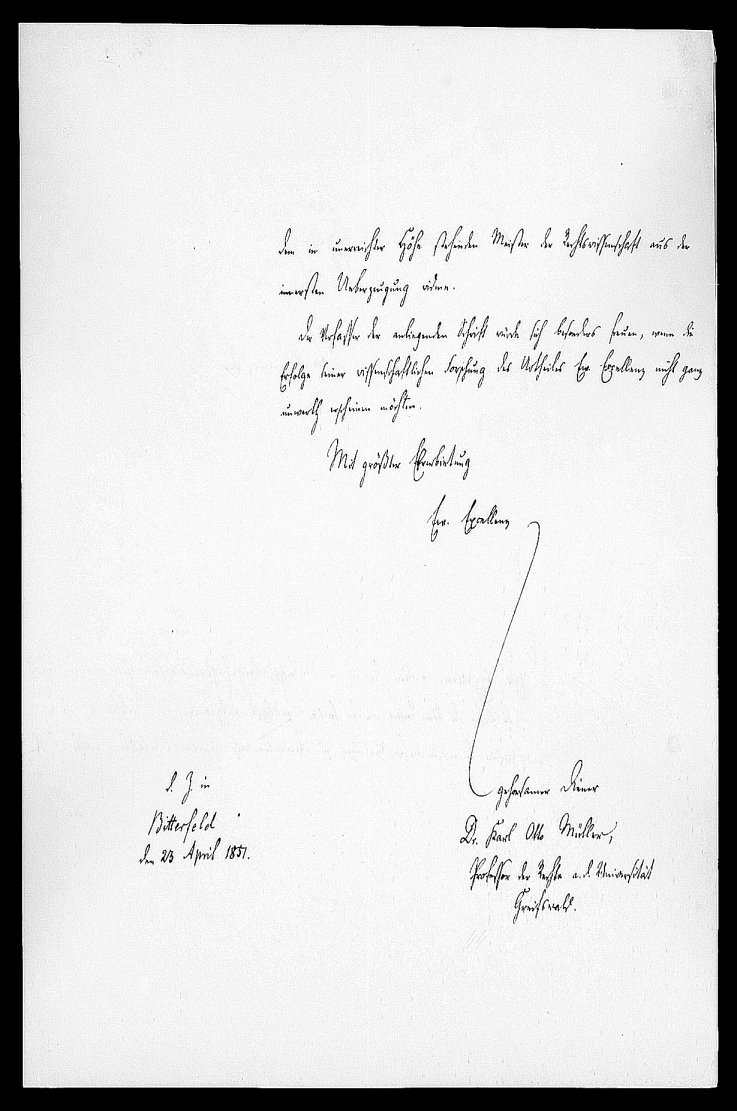 dem in unerreichter Höhe stehenden Meister der Rechtswissenschaft aus der
innersten Ueberzeugung widme.
Der Verfasser der anliegenden Schrift würde sich besonders freuen, wenn die
Erfolge seiner wissenschaftlichen Forschung des Urtheiles Ew. Excellenz nicht ganz
unwerth erscheinen möchten.
Mit größter Ehrerbietung
Ew. Excellenz
gehorsamer Diener
Dr. Karl Otto Müller,
Professor der Rechte a. d. Universität
Greifswald.
d. Z. in
Bitterfeld
den 23 April 1857.